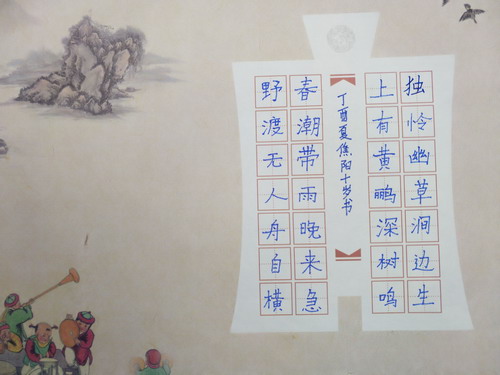 独怜幽草涧边生
上有黄鹂深树鸣
丁酉夏焦阳十岁书
春潮带雨晚来急
野渡无人舟自横